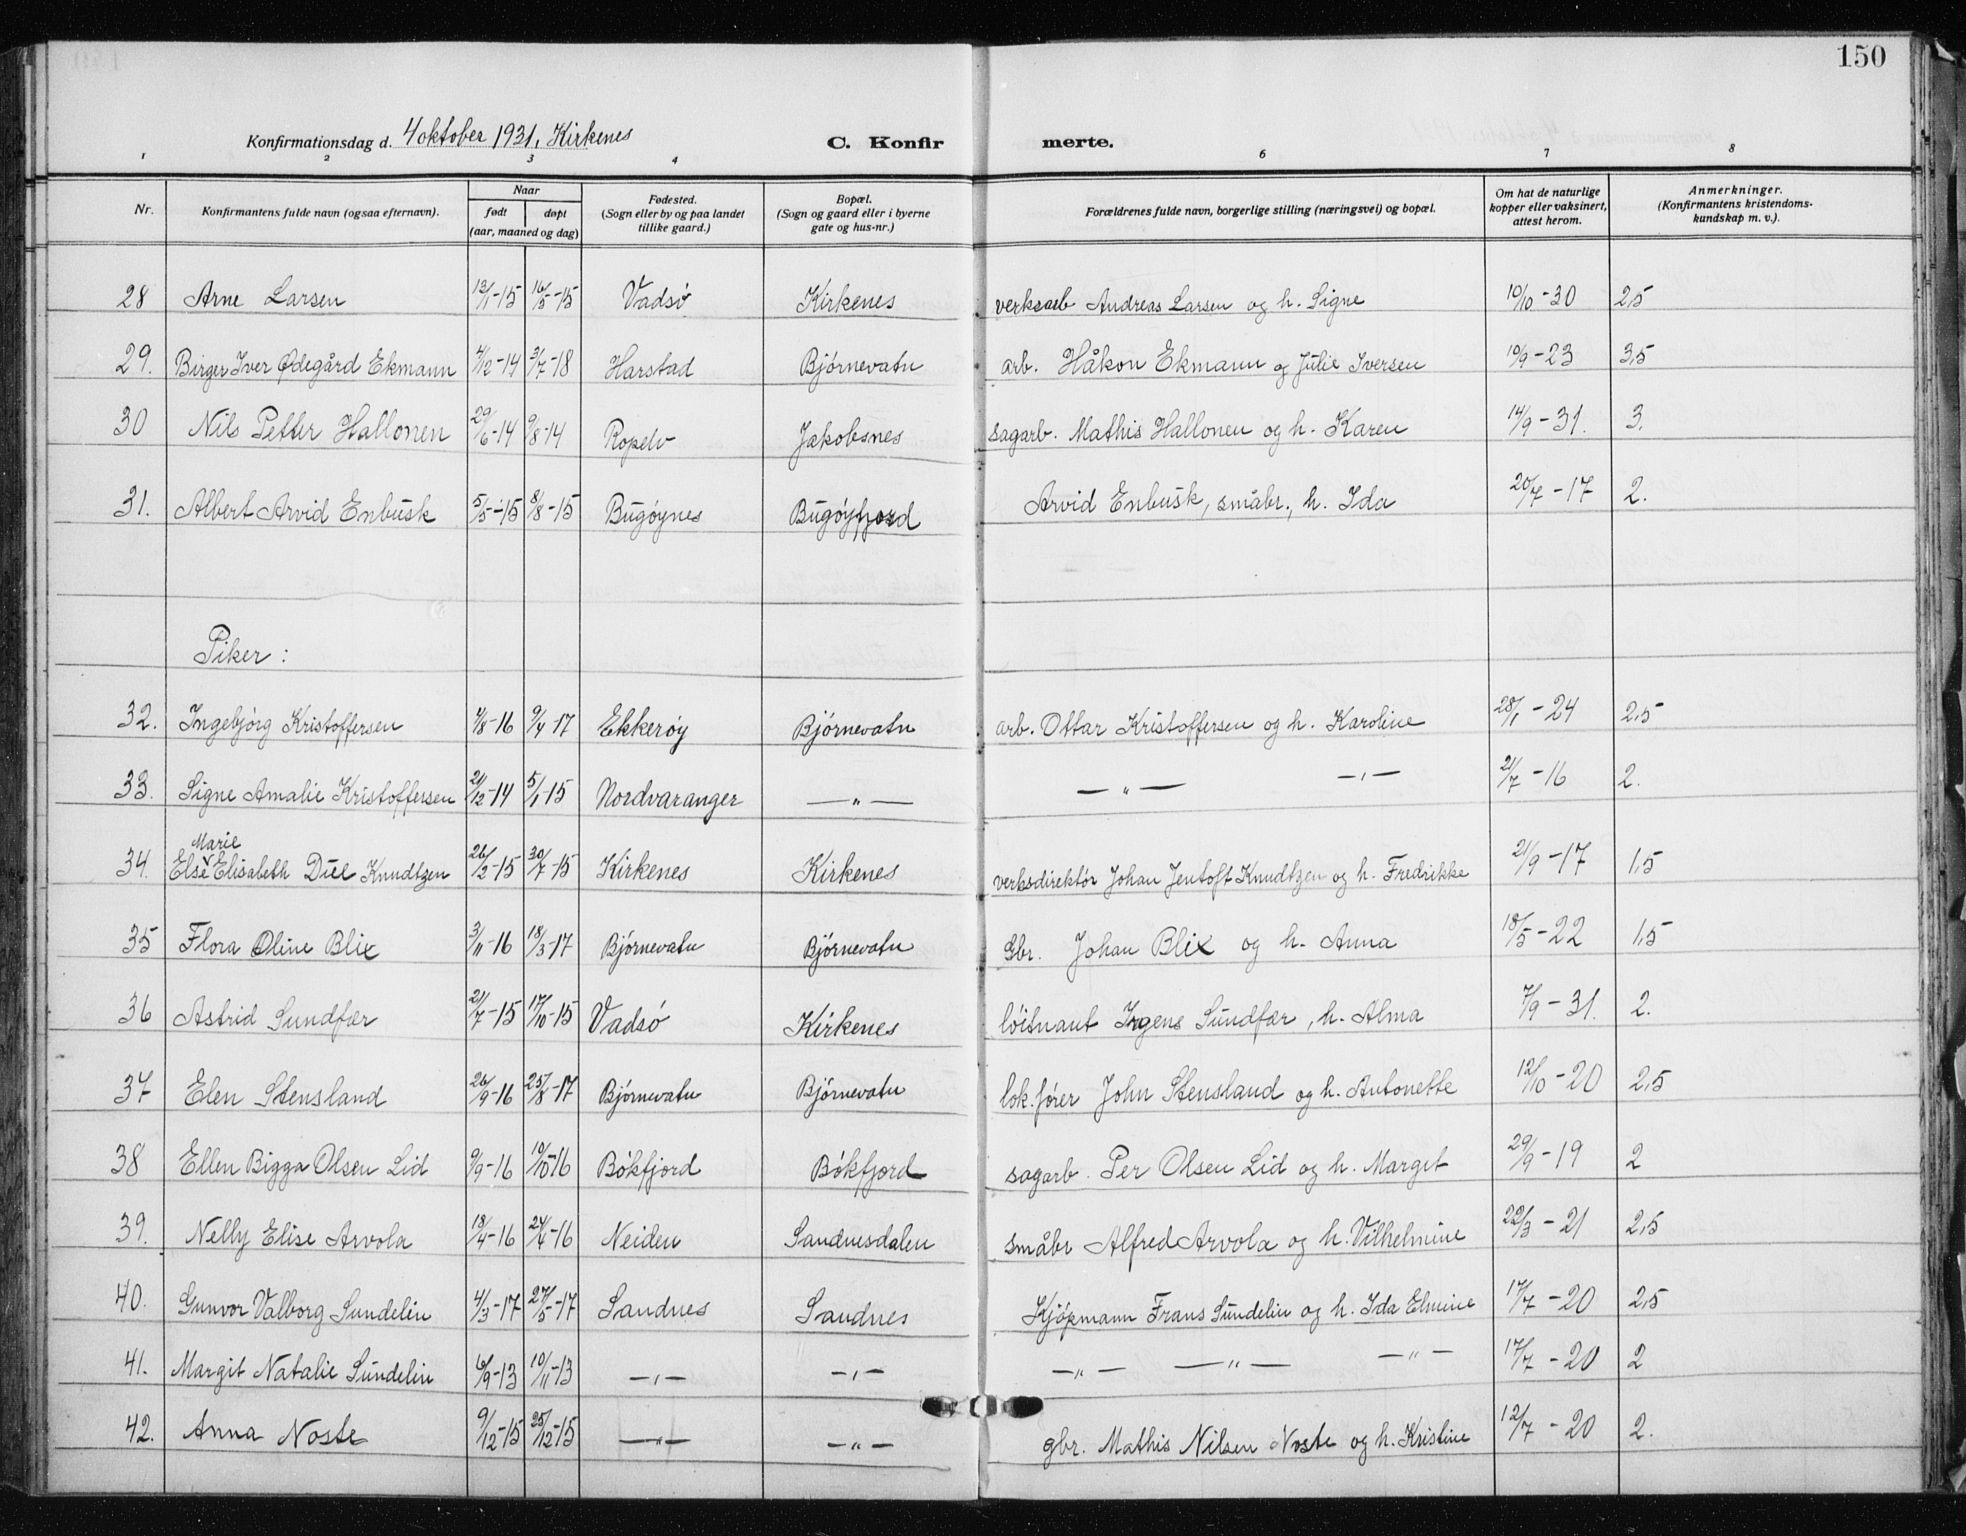 150
Konfirmationsdag d. 4 oktober 1931, Kirkenes C. Konfir merte.
1 2 3 4 6 7 8
Nr. Konfirmantens fulde navn (ogsaa efternavn). Naar født døpt (aar, maaned og dag) Fødested. (Sogn eller by og paa landet tillike gaard.) Bopæl. (Sogn og gaard eller i byerne gate og hus-nr.) Forældrenes fulde navn, borgerlige stilling (næringsvei) og bopæl. Om hat de naturlige kopper eller vaksinert, attest herom. Anmerkninger. (Konfirmantens kristendoms-kundskap m. v.).
28 Arne Larsen 13/1-15 16/5-15 Vadsø Kirkenes verksarb Andreas Larsen og h. Signe 10/10-30 2,5
29. Birger Iver Ødegård Ekmann 4/12-14 3/7-18 Harstad Bjørnevatn arb. Håkon Ekmann og Julie Iversen 10/9-23 3,5
30 Nils Petter Hallonen 29/6-14 9/8-14 Ropelv Jakobsnes sagarb. Mathis Hallonen og h. Karen 14/9-31. 3.
31. Albert Arvid Enbusk 5/5-15 8/8-15 Bugøynes Bugøyfjord Arvid Enbusk, småbr., h. Ida 20/7-17 2.
Piker:
32. Ingebjørg Kristoffersen 4/8-16 9/4-17 Ekkerøy Bjørnevatn arb. Ottar Kristoffersen og h. Karoline 28/1-24 2,5
33. Signe Amalie Kristoffersen 21/12-14 5/1-15 Nordvaranger —"— —"— —"— 21/7-16 2.
34. Else Marie Elisabeth Due Knudtzen 26/2-15 30/7-15 Kirkenes Kirkenes verksdirektør Johan Jentoft Knudtzen og h. Fredrikke 21/9-17 1,5
35 Flora Oline Blix 3/11-16 18/3-17 Bjørnevatn Bjørnevatn Gbr. Johan Blix og h. Anna 18/5-22 1,5
36 Astrid Sundfær 21/7-15 17/10-15 Vadsø Kirkenes løitnant Ingens Sundfær, h. Alma 7/9-31. 2.
37 Elen Stensland 26/9-16 25/8-17 Bjørnevatn Bjørnevatn lok.fører John Stensland og h. Antonette 12/10-20 2,5
38 Ellen Bigga Olsen Lid 9/9-16 10/10-16 Bøkfjord Bøkfjord sagarb. Per Olsen Lid og h. Margit 29/9-19 2
39. Nelly Elise Arvola 18/4-16 24/4-16 Neiden Sandnesdalen småbr Alfred Arvola og h. Vilhelmine 22/3-21 2,5
40. Gunvor Valborg Sundelin 4/3-17 27/5-17 Sandnes Sandnes Kjøpmann Frans Sundelin og h. Ida Elmine 17/7-20 2,5
41. Margit Natalie Sundelin 6/9-13 10/11-13 —"— —"— —"— —"— —"— 17/7-20 2
42. Anna Noste 9/12-15 25/12-15 —"— —"— gbr. Mathis Nilsen Noste og h. Kristine 12/7-20 2.